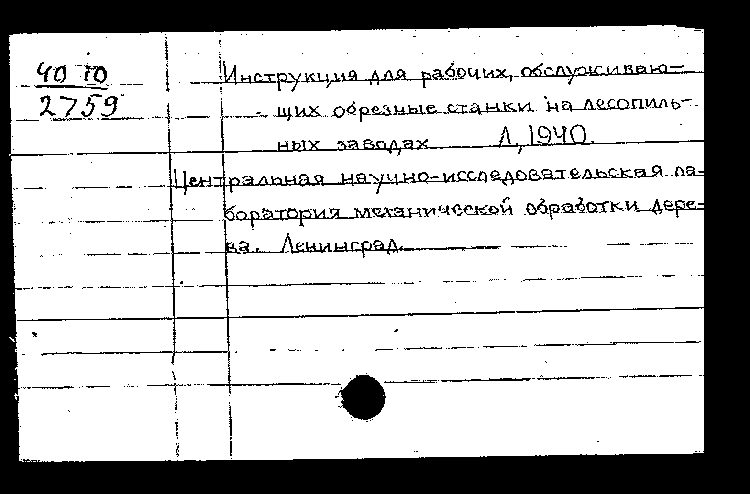 40 10
2759
Инструкция для рабочих, обслуживаю-
щих обрезные станки на лесопиль-
ных заводах Л, 1940.
Центральная научно-исследовательская ла-
боратория механической обработки дере-
ва. Ленинград.